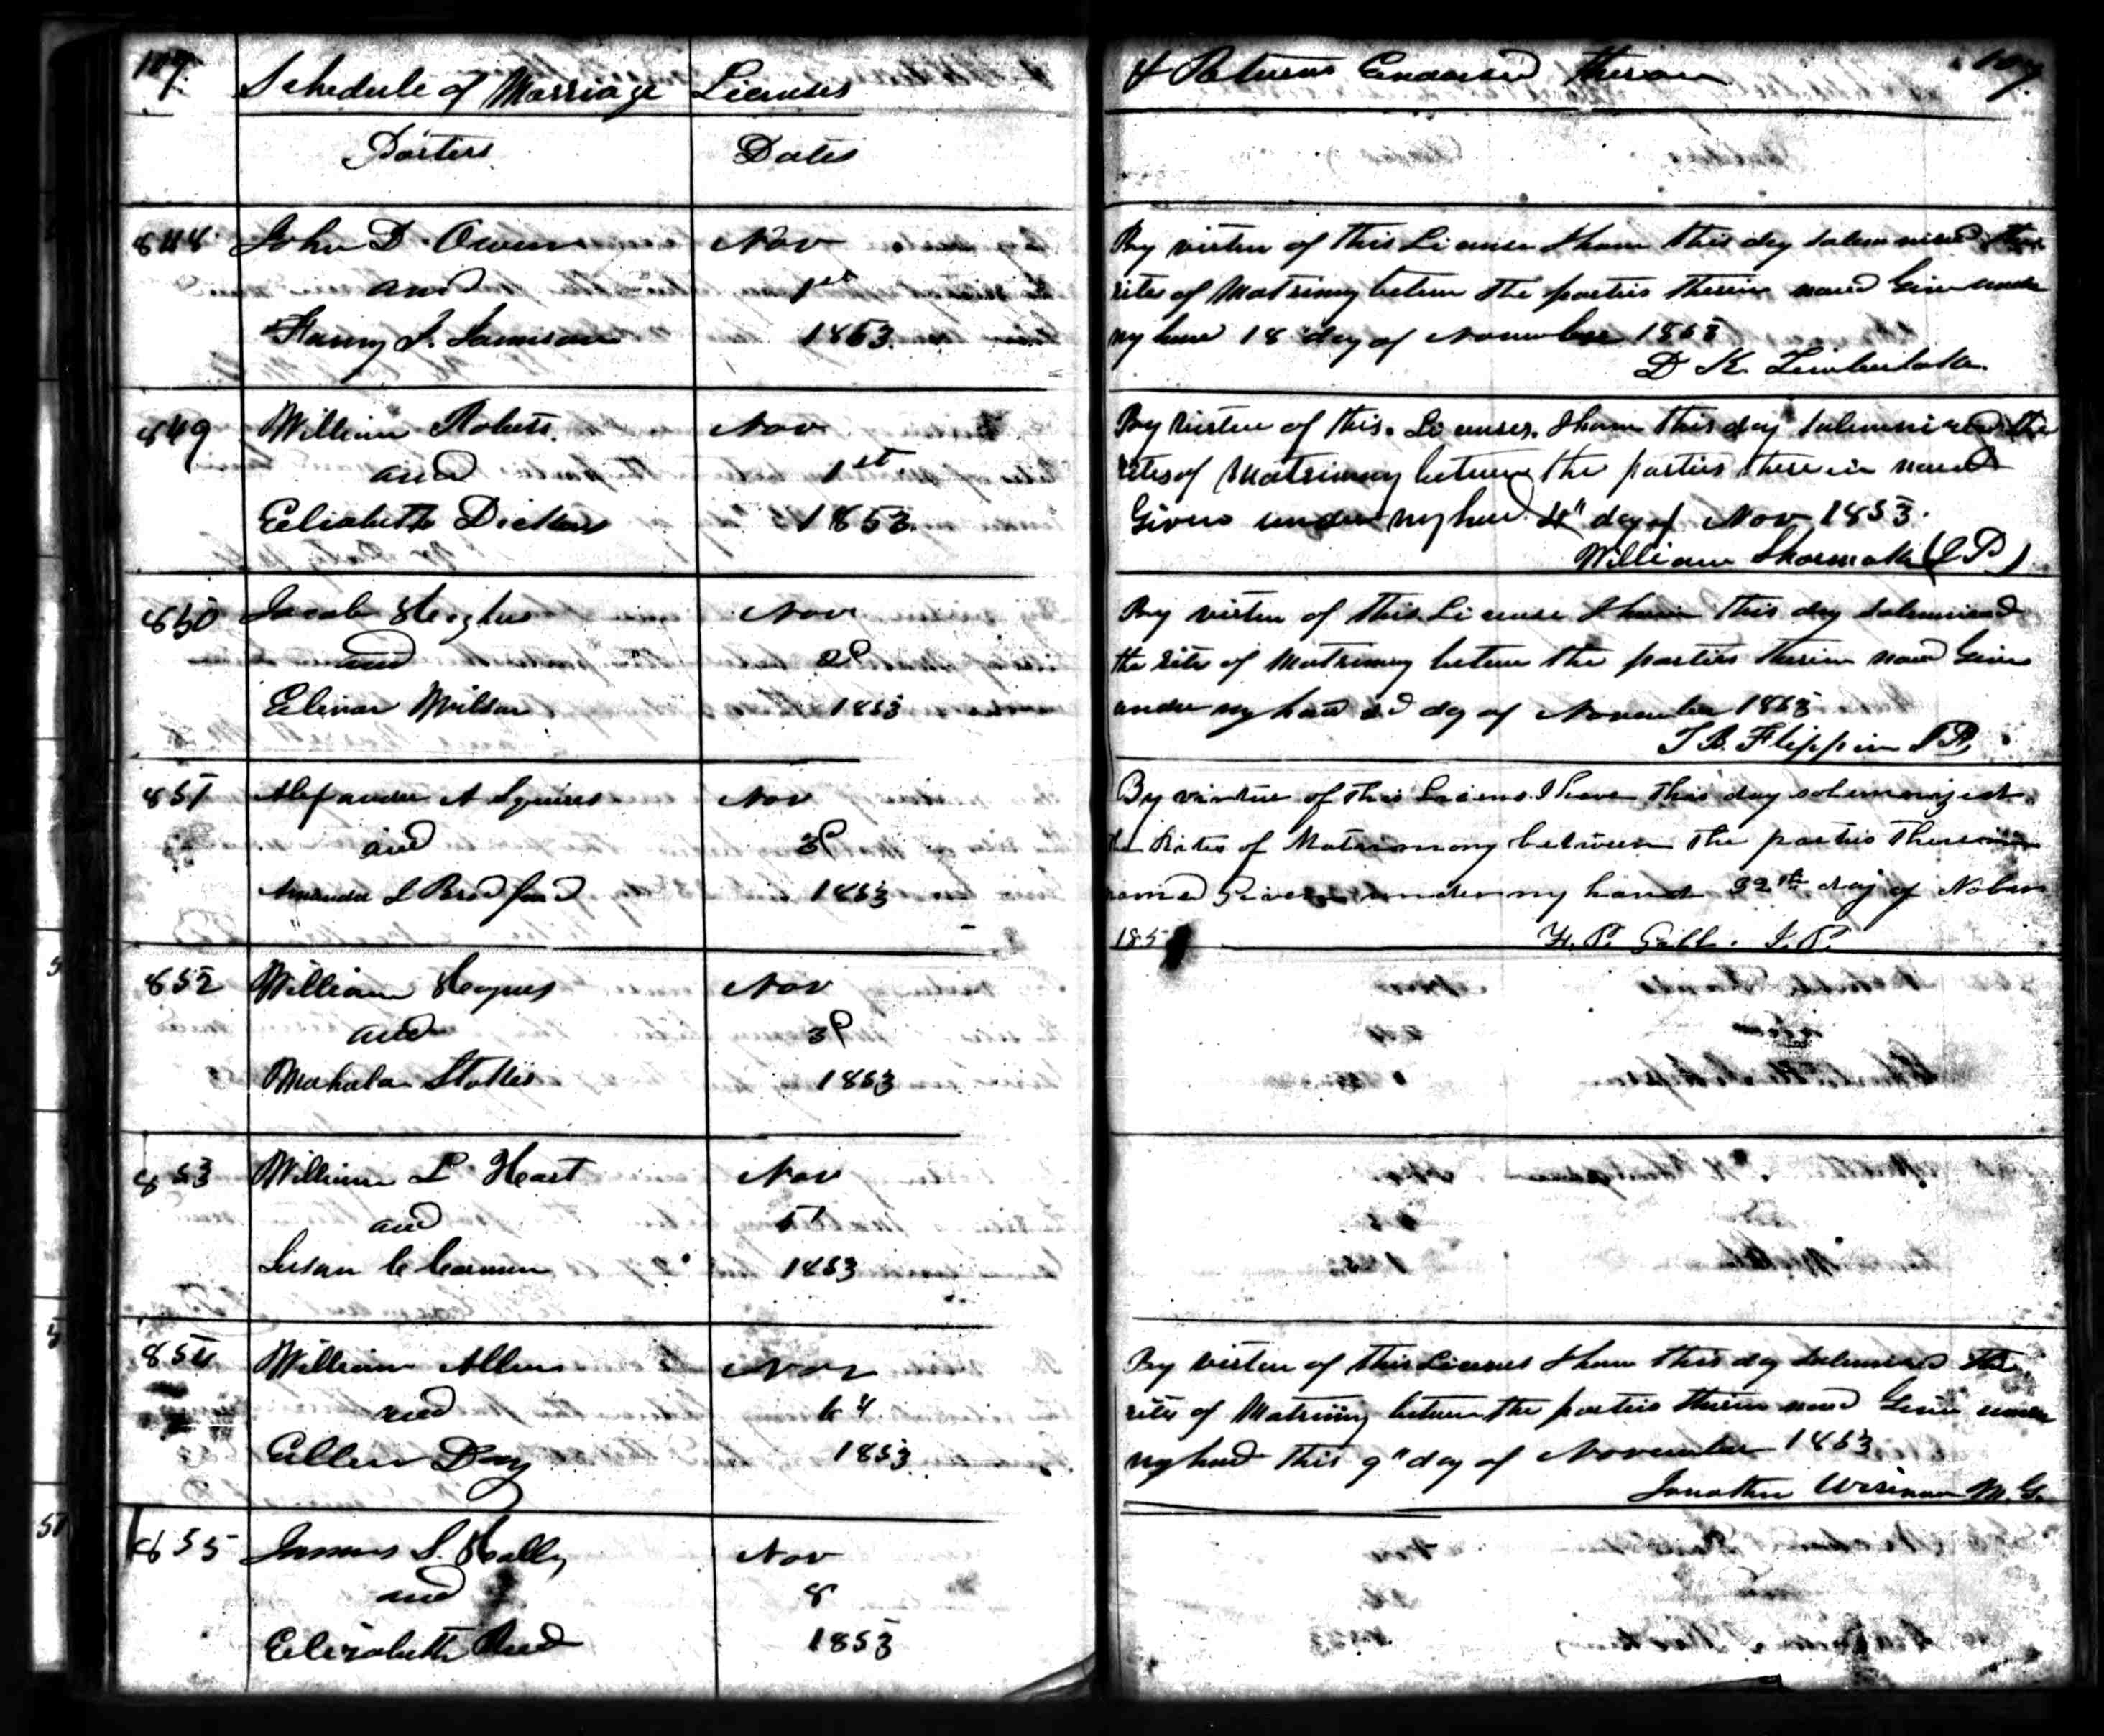 107.
Schedule of Marriage Licenses
Parties
Dates
848 John D. Owen Nov
and 1st
J. Jamison 1853.
849 William Roberts. Nov
and 1st
Elizabeth Dickens 1853.
850 Jacob Nov
and 2d
Elinor Wilson 1853
851 Alexander A Squires Nov
and 3d
Amanda J Bradford 1853
852 William Haynes Nov
and 3d
Mahala 1853
853 William L Heart Nov
and 5
Susan C Carman 1853
854 William Allen Nov
and 6"
Ellen Day 1853
855 James S. Nov
and 8
Elizabeth Reed 1853
& Returns Endorsed thereon 107.
By virtue of this License I have this day solemnised the
rites of Matrimony between the parties therein named Given under
my hand 18 day of November 1853
D K. Timberlake
By virtue of this. Licenses. I have this day solemnized the
rites of Matrimony between the parties therein named
Given under my hand 4" day of Nov 1853.
William Shoemake (J P)
By virtue of this License I have this day solemnised
the rites of Matrimony between the parties therein named Given
under my hand 2d day of November 1853
T B. Flippin J P,
By virtue of this License I have this day solemnized
the Rites of Matrimony between the parties therein
named Given under my hand day of
185 P. Gill. J. P.
By virtue of this Licenses I have this day solemnised the
rites of Matrimony between the parties therein named Given under
my hand this 9" day of November 1853
Jonathan Wiseman M. G.